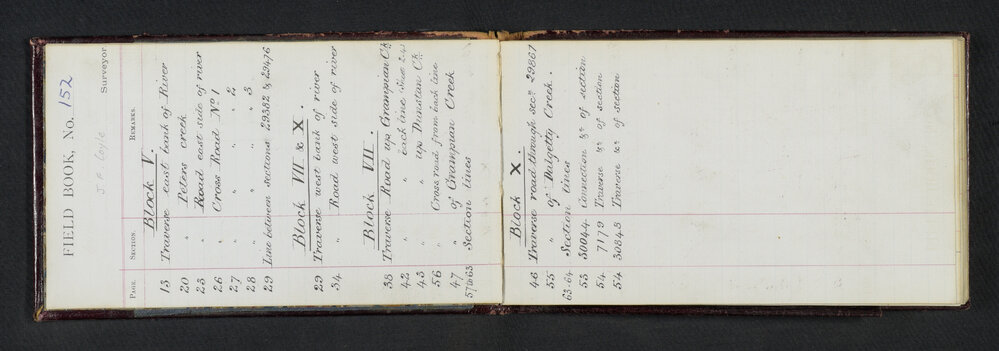 FIELD BOOK, No. 152
J F Coyle Surveyor
PAGE. SECTION. REMARKS.
Block V.
13 Traverse east bank of River
20 " Peters creek
23 " Road east side of river
26 Cross Road No 1
27 " " " 2
28 " " " 3
29 Line between sections 29382 & 29476
Block VII & X.
29 Traverse west bank of river
34 " Road west side of river
Block VII.
38 Traverse Road up Grampian Ck
42 " back line Sect 24
43 " up Dunstan Ck
56 Cross road from back line
47 " of Grampian Creek
57to63 Section lines
Block X.
46 Traverse road through secn 29867
55 " of Dalgetty Creek.
63-64 Section lines
53 30044 Connection &c of section
54 7119 Traverse &c of section
54 30848 Traverse &c of section